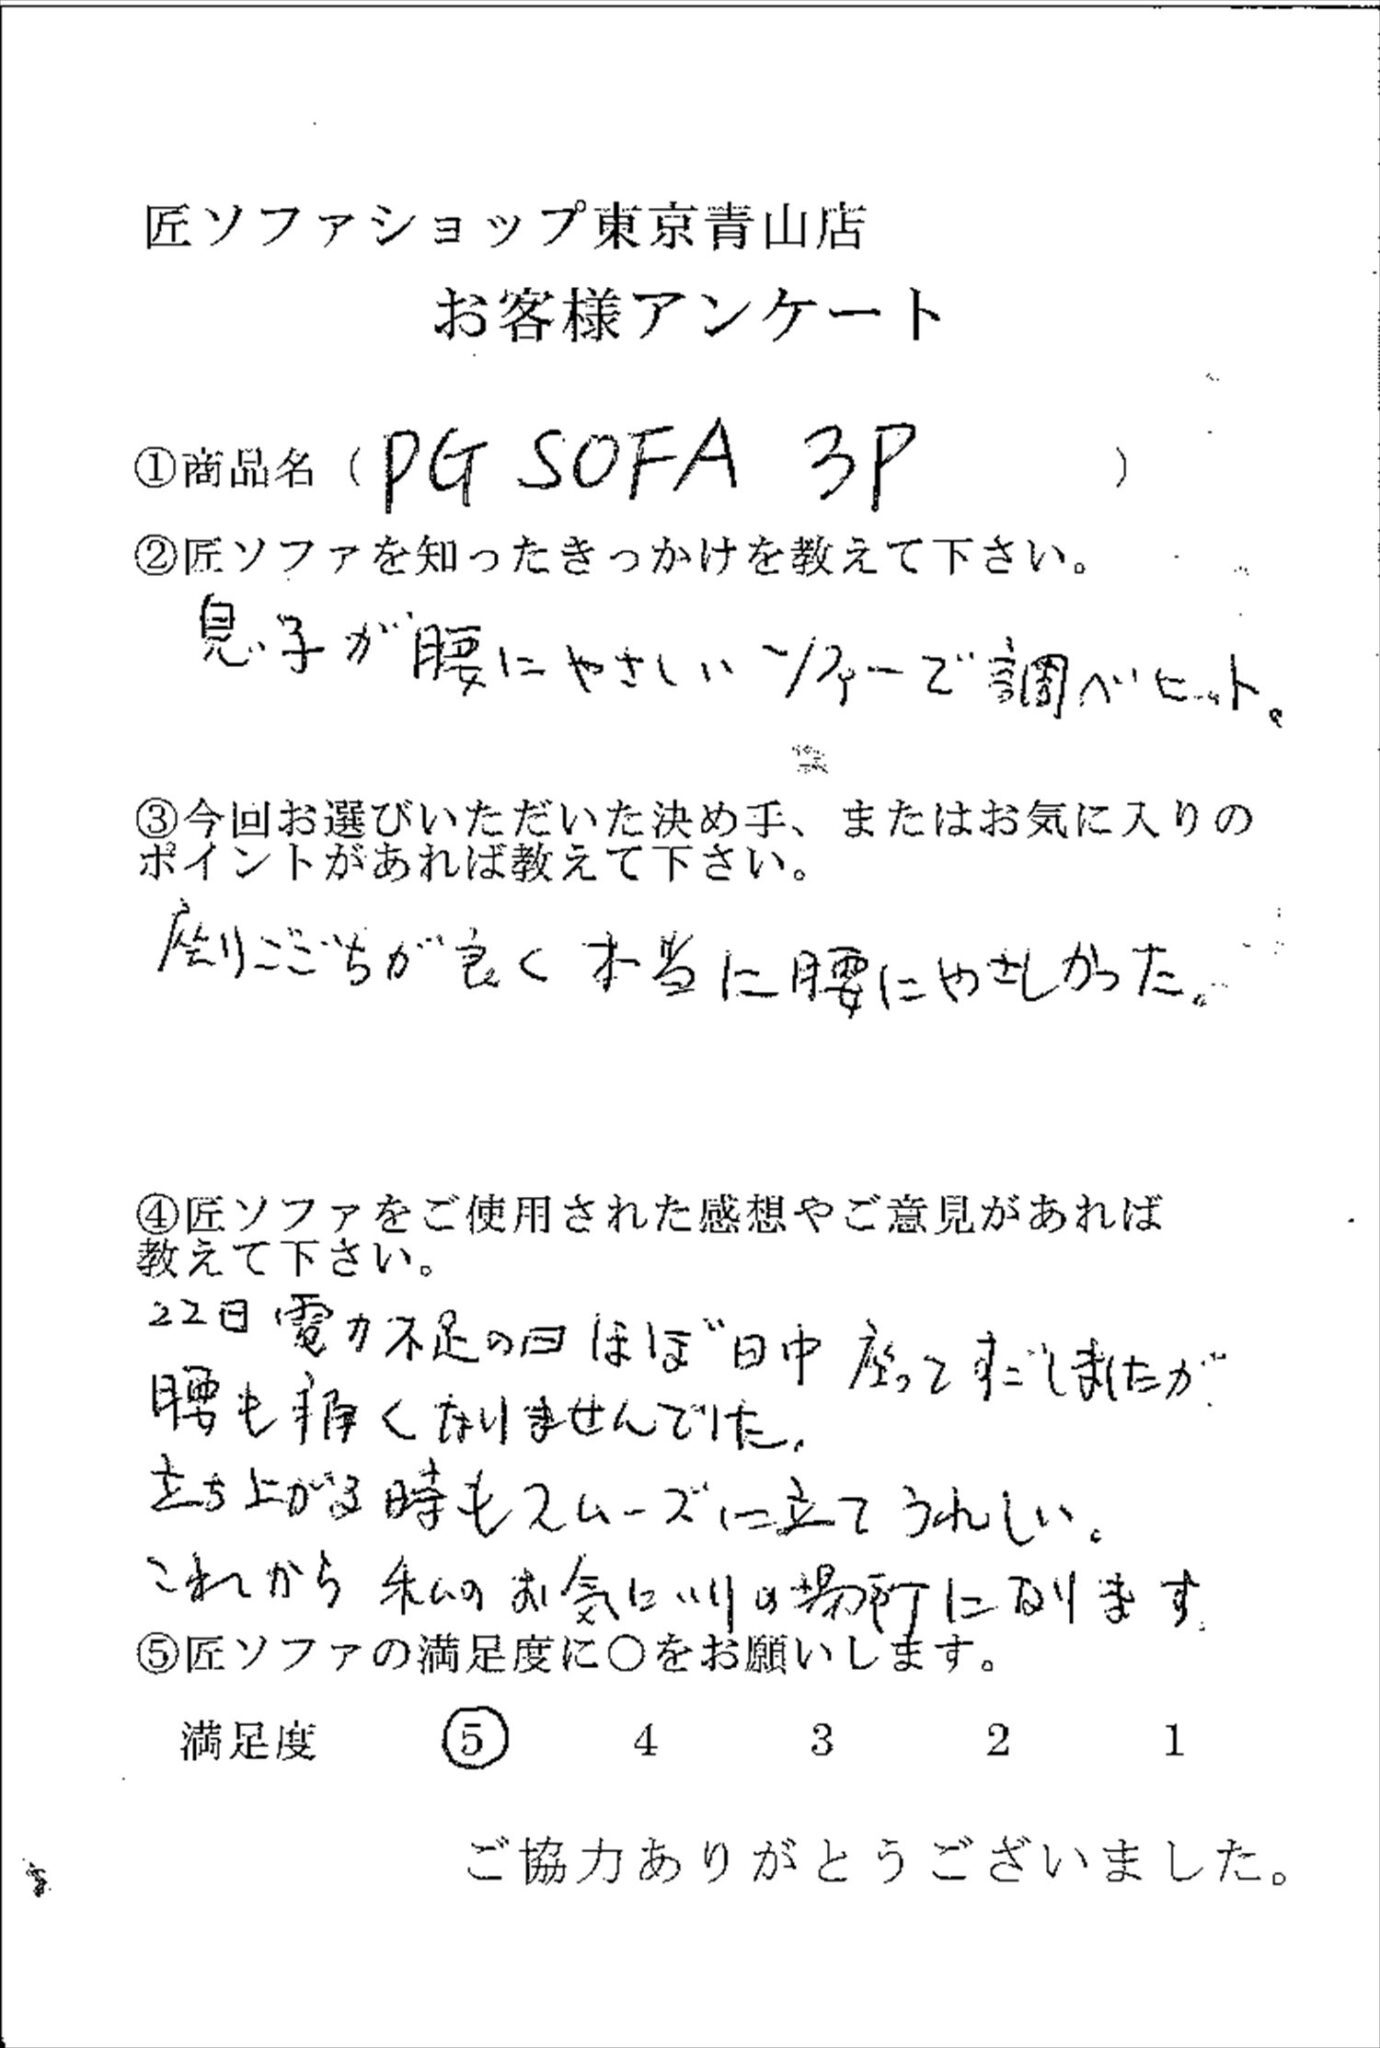 匠ソファショップ東京青山店
お客様アンケート
①商品名（ PG SOFA 3P ）
②匠ソファを知ったきっかけを教えて下さい。
息子が腰にやさしいソファーで調べヒット。
③今回お選びいただいた決め手、またはお気に入りの
ポイントがあれば教えて下さい。
座りごごちが良く本当に腰にやさしかった。
④匠ソファをご使用された感想やご意見があれば
教えて下さい。
22日電力不足の日ほぼ日中座ってすごしましたが
腰も痛くなりませんでした。
立ち上がる時もスムーズに立てうれしい。
これから私のお気に入りの場所になります。
⑤匠ソファの満足度に○をお願いします。
満足度 5 4 3 2 1
ご協力ありがとうございました。